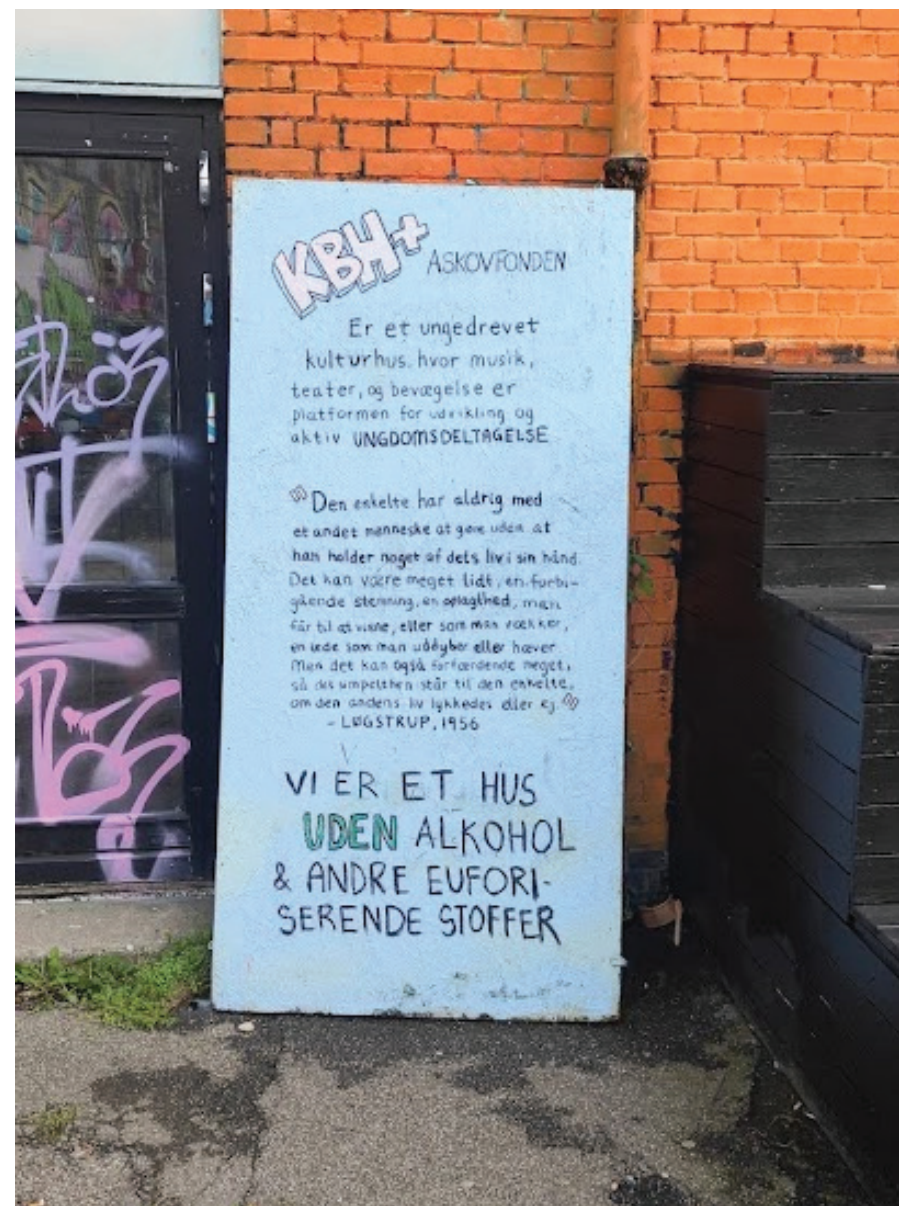 KBH+ ASKOVFONDEN
Er et ungedrevet
kulturhus, hvor musik,
teater, og bevægelse er
platformen for udvikling og
aktiv UNGDOMSDELTAGELSE
"Den enkelte har aldrig med
et andet menneske at gøre uden at
han holder noget af dets liv i sin hånd.
Det kan være meget lidt, en forbi-
gående stemning, en oplagthed, man
får til at visne, eller som man vækker,
en lede som man uddyber eller hæver.
Men det kan også forfærdende meget,
så det simpelthen står til den enkelte,
om den andens liv lykkedes eller ej."
- LØGSTRUP, 1956
VI ER ET HUS
UDEN ALKOHOL
& ANDRE EUFORI-
SERENDE STOFFER